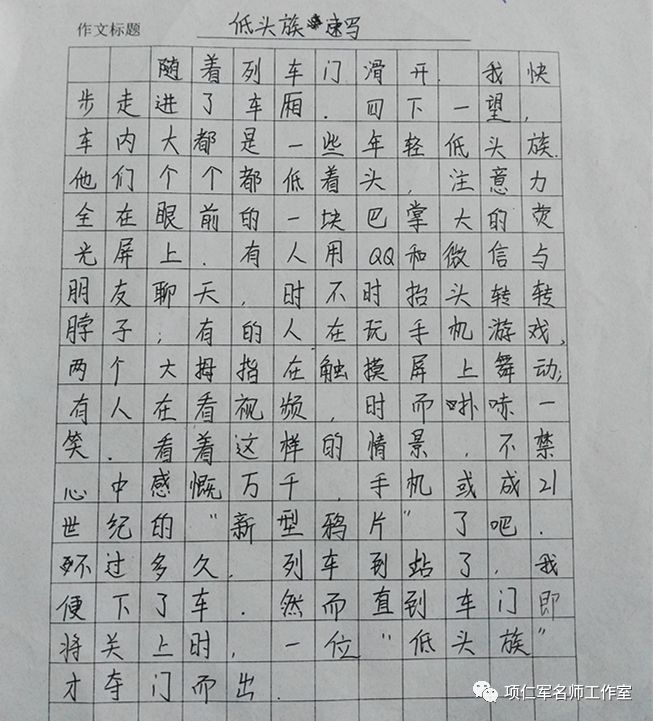 作文标题 低头族速写
随着列车门滑开.我快
步走进了车厢.四下一望,
车内大都是一些年轻低头族.
他们个个都低着头,注意力
全在眼前的一块巴掌大的荧
光屏上.有人用QQ和微信与
朋友聊天,时不时抬头转转
脖子;有的人在玩手机游戏,
两个大拇指在触摸屏上舞动;
有人在看视频,时而噗哧一
笑.看着这样的情景,不禁
心中感慨万千,手机或成21
世纪的"新型鸦片"了吧.
不过多久,列车到站了,我
便下了车.然而直到车门即
将关上时,一位"低头族"
才夺门而出.
项仁军名师工作室